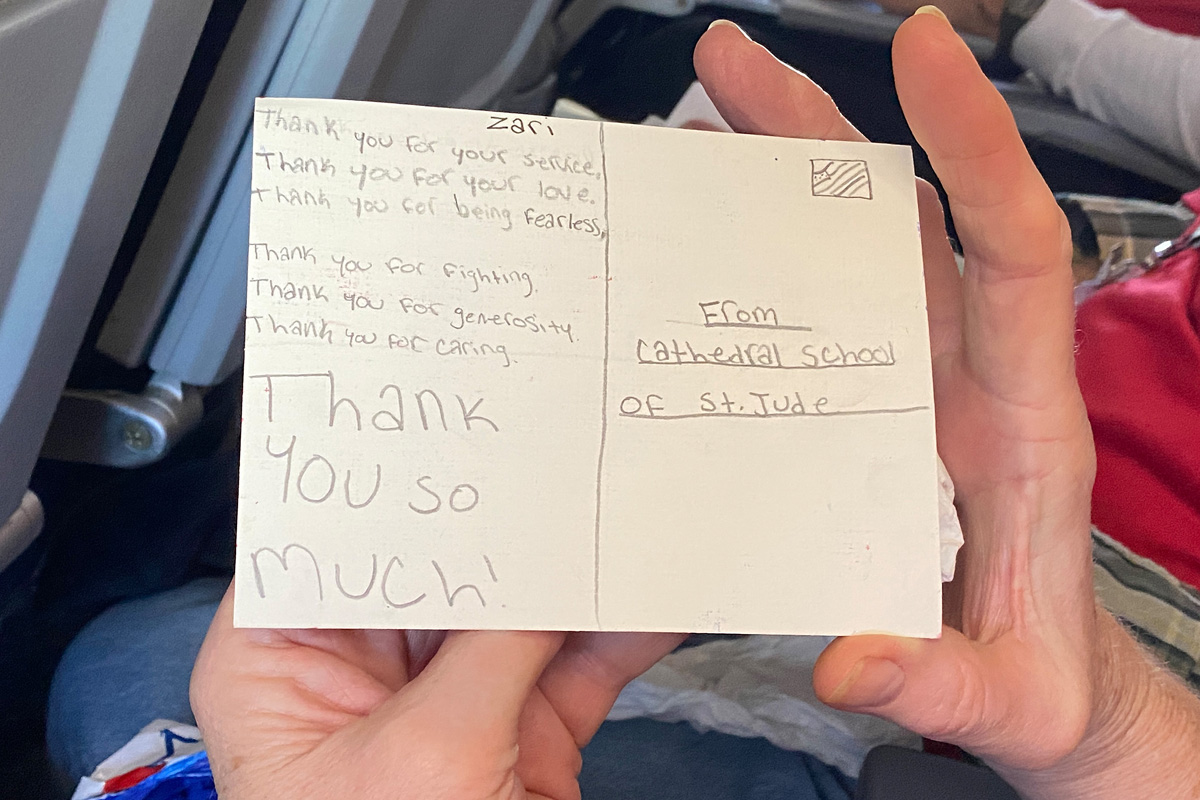 Zari
Thank you for your service.
Thank you for your love.
Thank you for being fearless,
Thank you for fighting.
Thank you for generosity.
Thank you for caring.
Thank
you so
much!
From
Cathedral School
of St. Jude